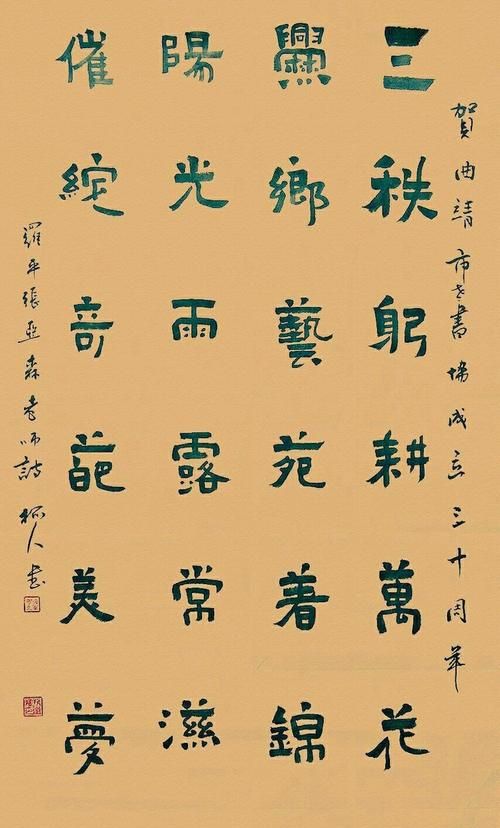 賀曲靖市老書協成立三十周年
三秩躬耕萬花
爨鄉藝苑着錦
陽光雨露常滋
催綻竒葩美夢
羅平張亞森老师詩 人书